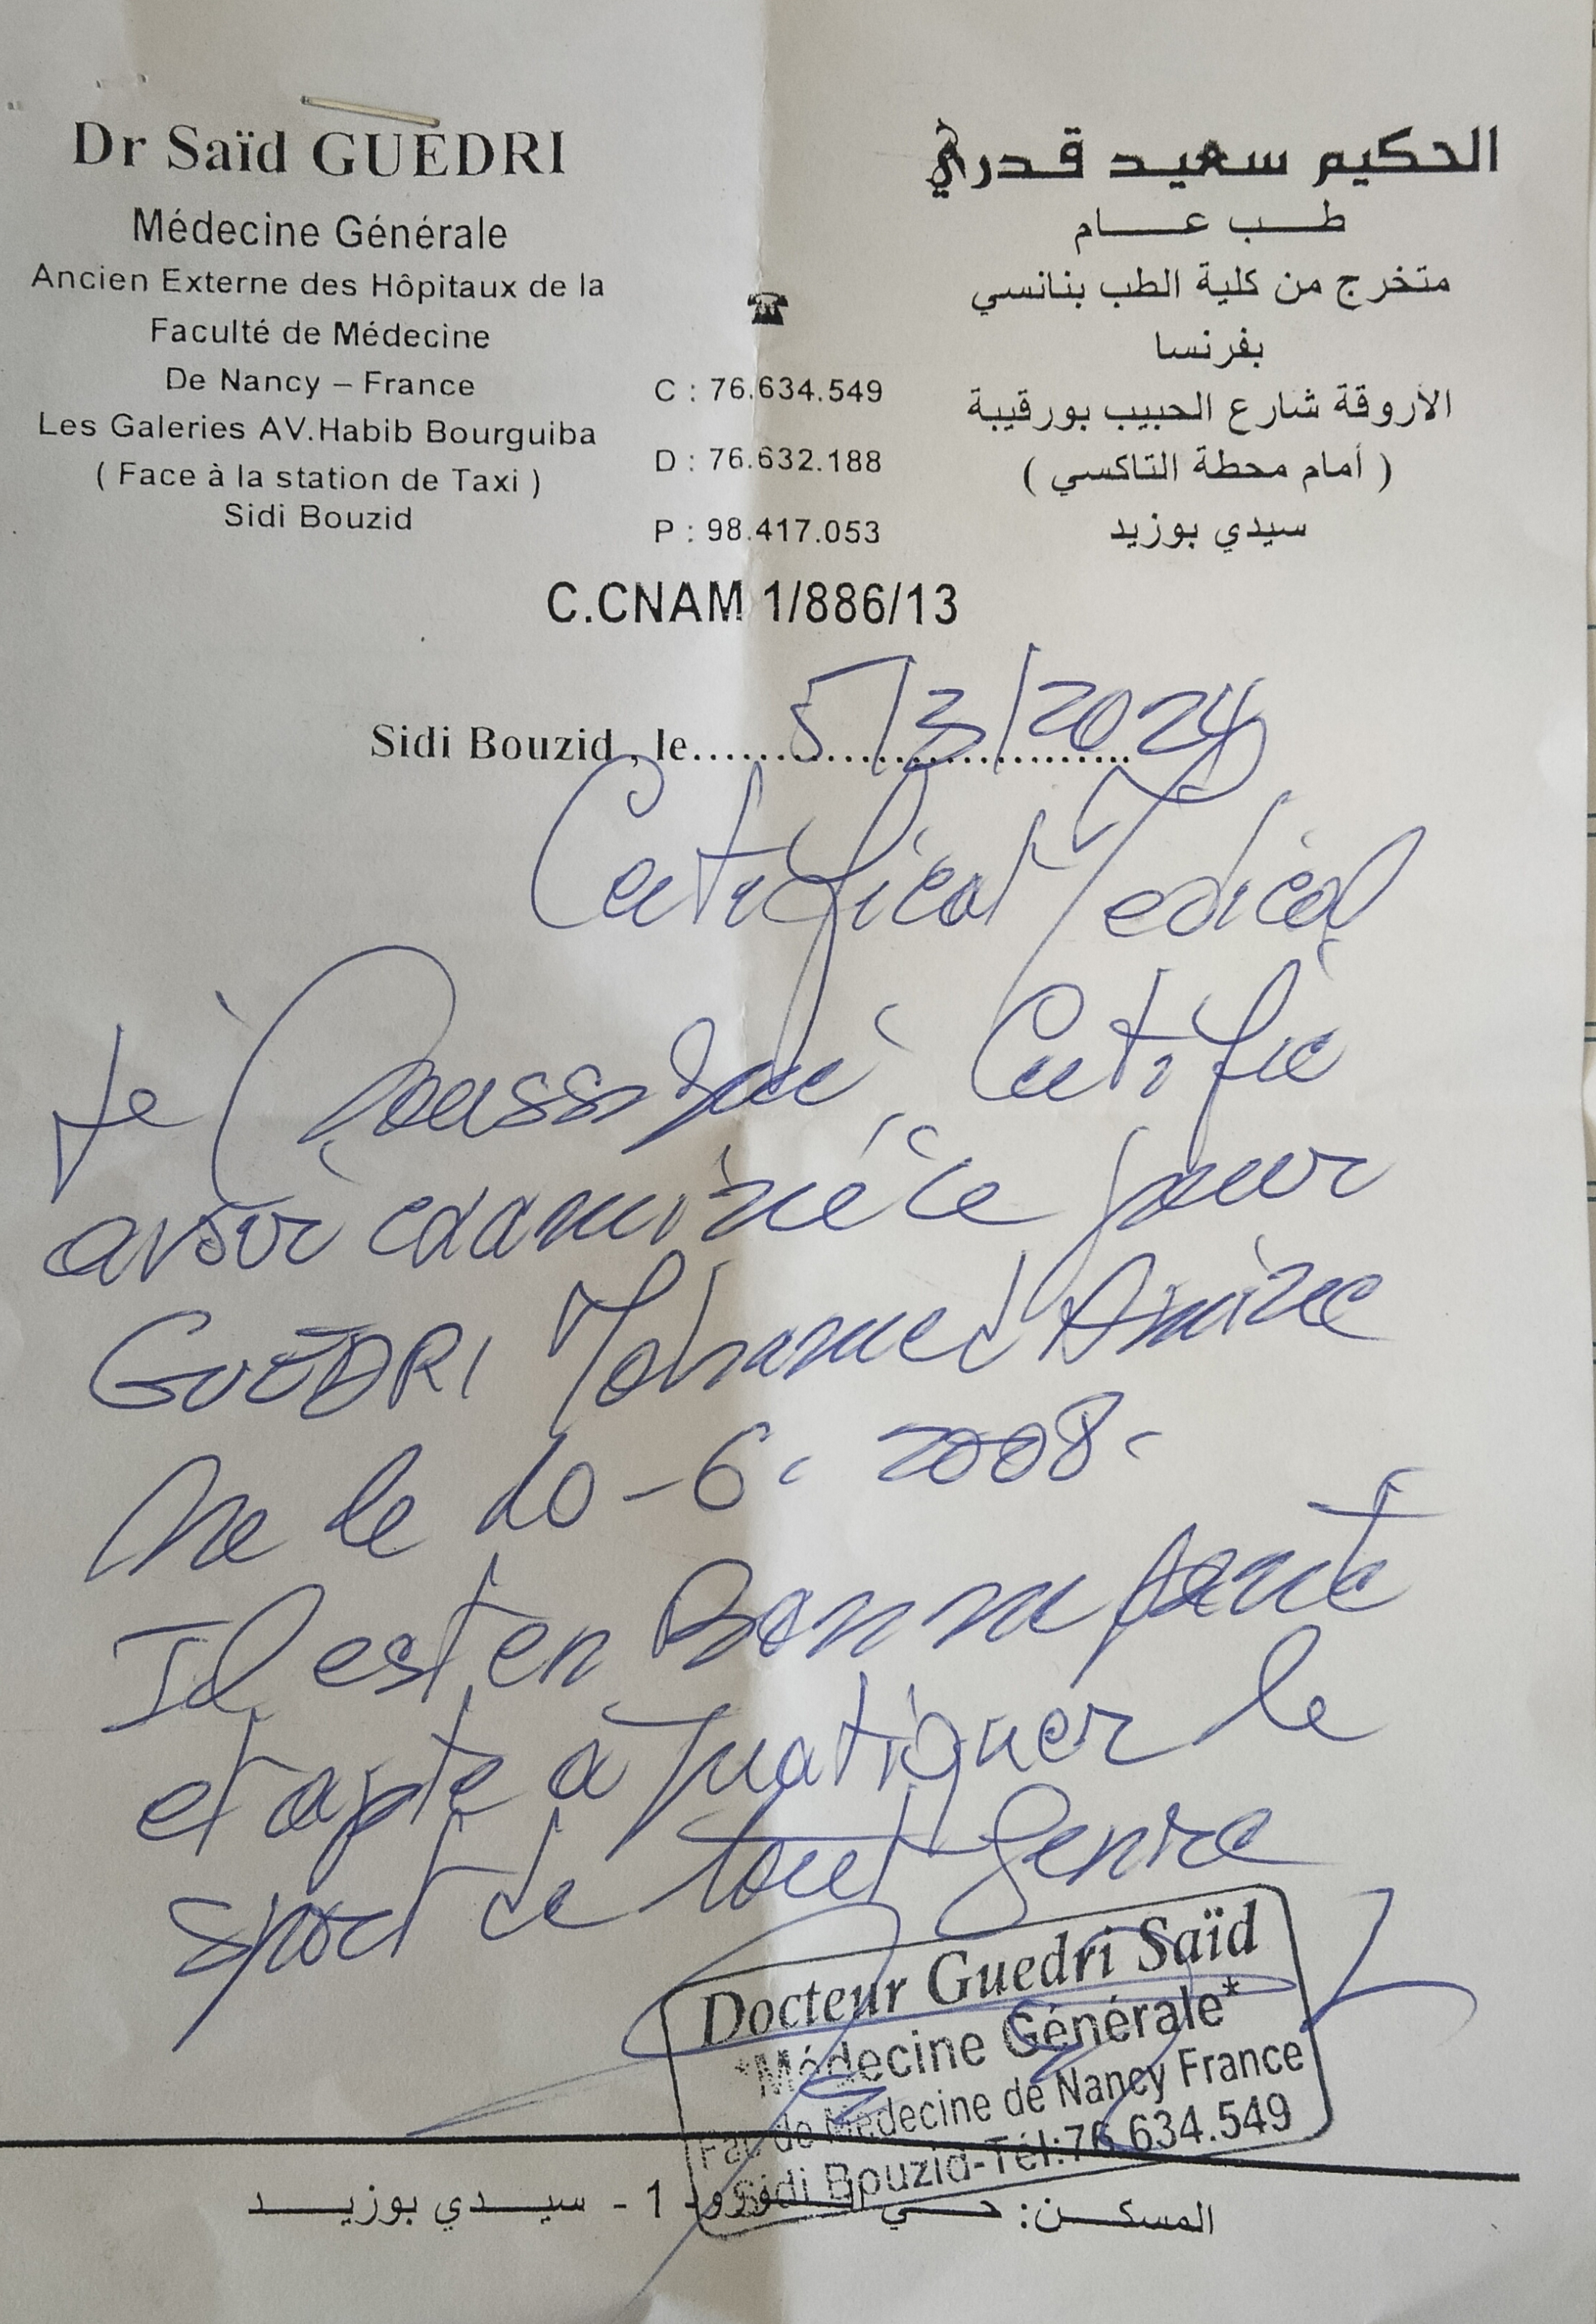 Dr Saïd GUEDRI
Médecine Générale
Ancien Externe des Hôpitaux de la
Faculté de Médecine
De Nancy – France
Les Galeries AV.Habib Bourguiba
( Face à la station de Taxi )
Sidi Bouzid
C : 76.634.549
D : 76.632.188
P : 98.417.053
الحكيم سعيد قدري
طب عام
متخرج من كلية الطب بنانسي
بفرنسا
الأروقة شارع الحبيب بورقيبة
( أمام محطة التاكسي )
سيدي بوزيد
C.CNAM 1/886/13
Sidi Bouzid , le 5/3/2024
Certificat Medical
Je Soussigné, Certifie
avoir examiné ce jour
GUEDRI Mohamed Amine
Ne le 10-6-2008-
Il est en Bonne santé
et apte à pratiquer le
sport de tout genre
Docteur Guedri Saïd
*Médecine Générale*
Fac de Médecine de Nancy France
Sidi Bouzid-Tél:76.634.549
المسكن: حي - 1 - سيدي بوزيد